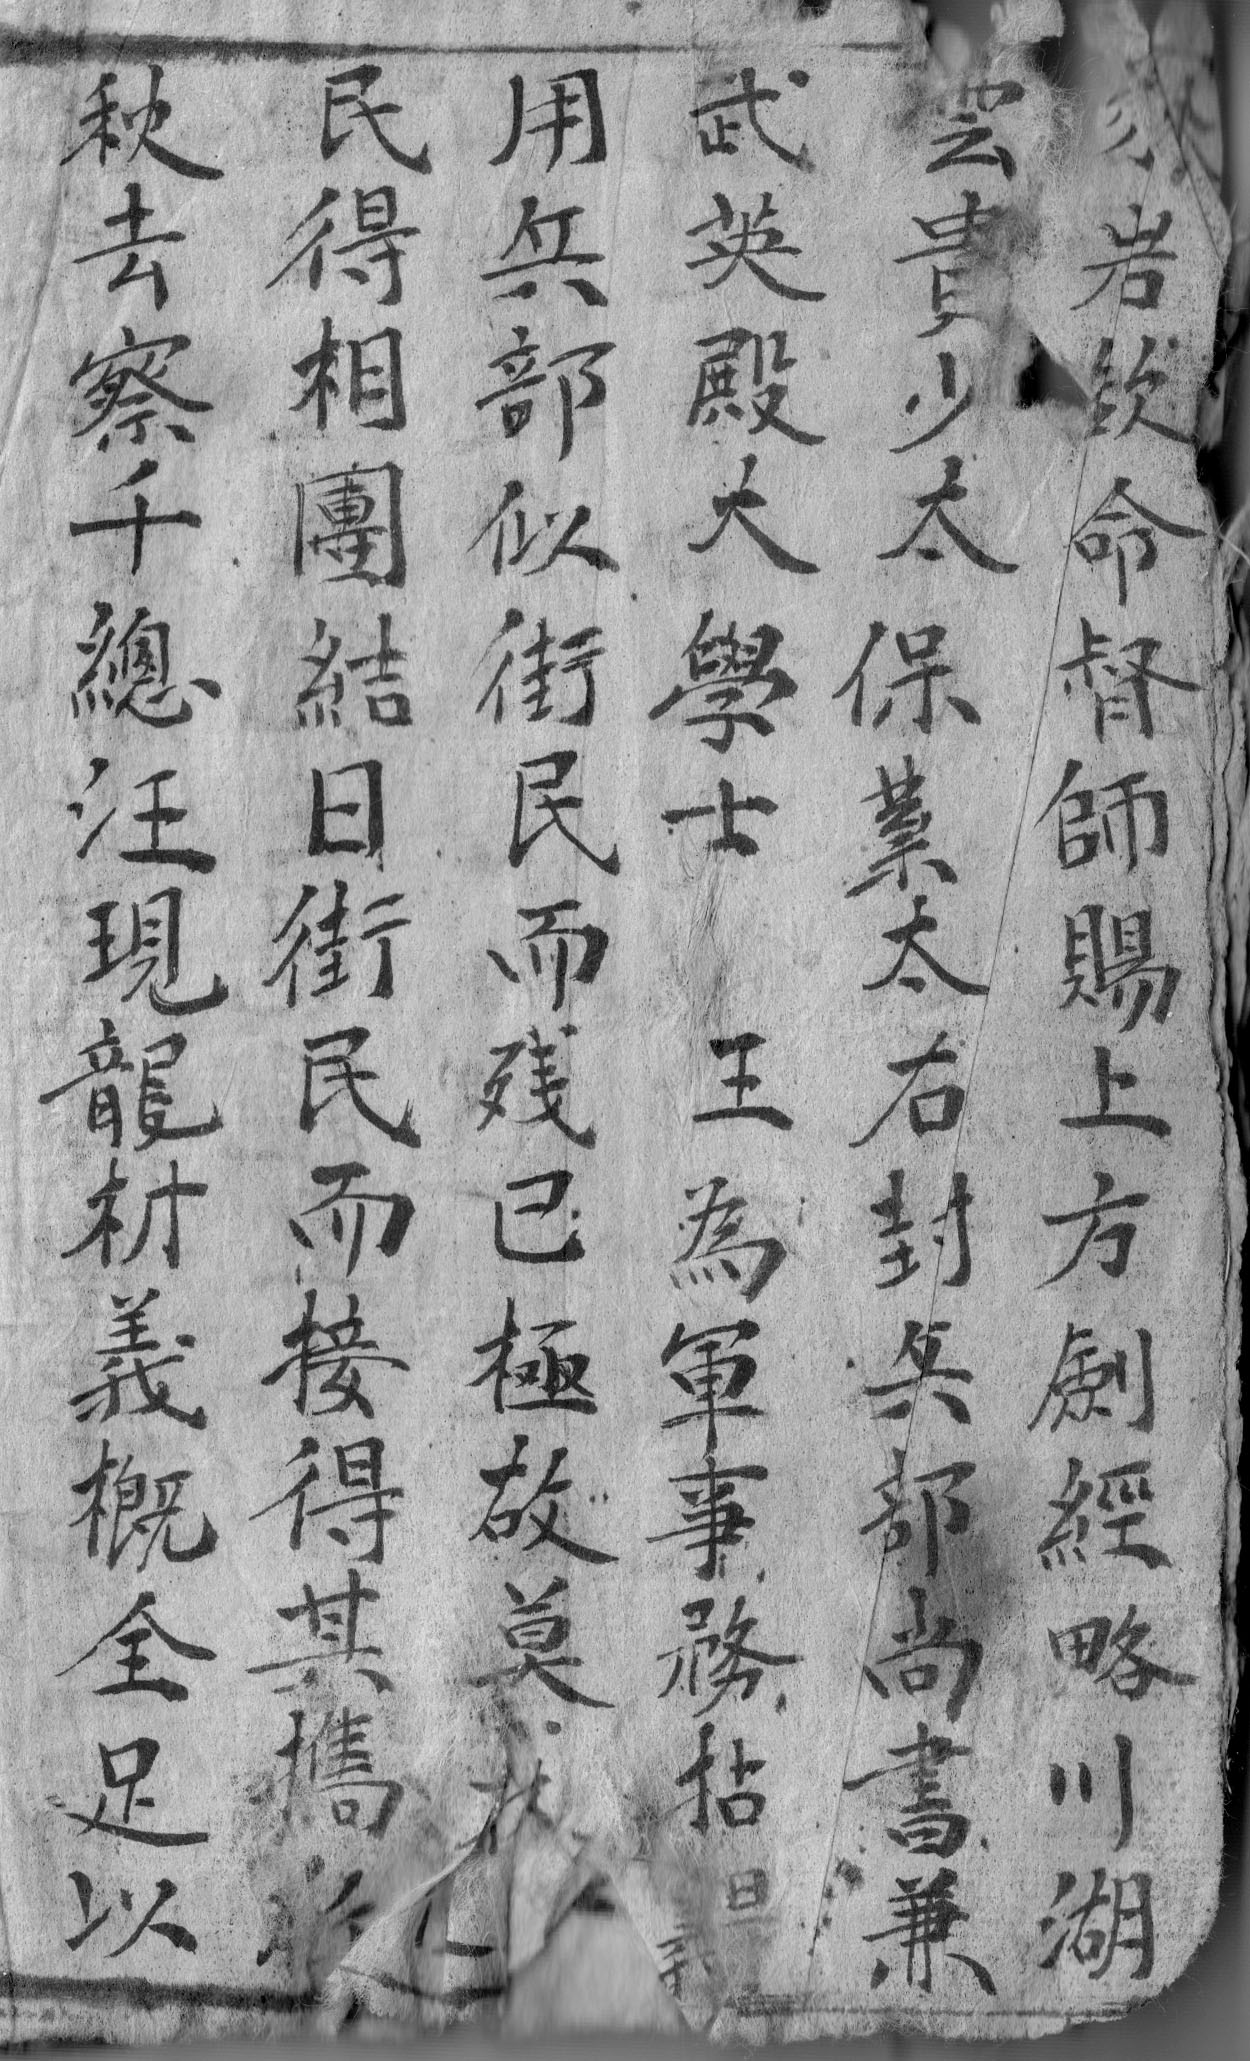 岩欽命督師賜上方劍經略川湖
雲貴少太保業太右封兵部尚書兼
武英殿大學士王為軍事務拈
用兵部似街民而残已極故莫
民得相團結日街民而接得其攜
秧去察千總汪現龍村義概全足以